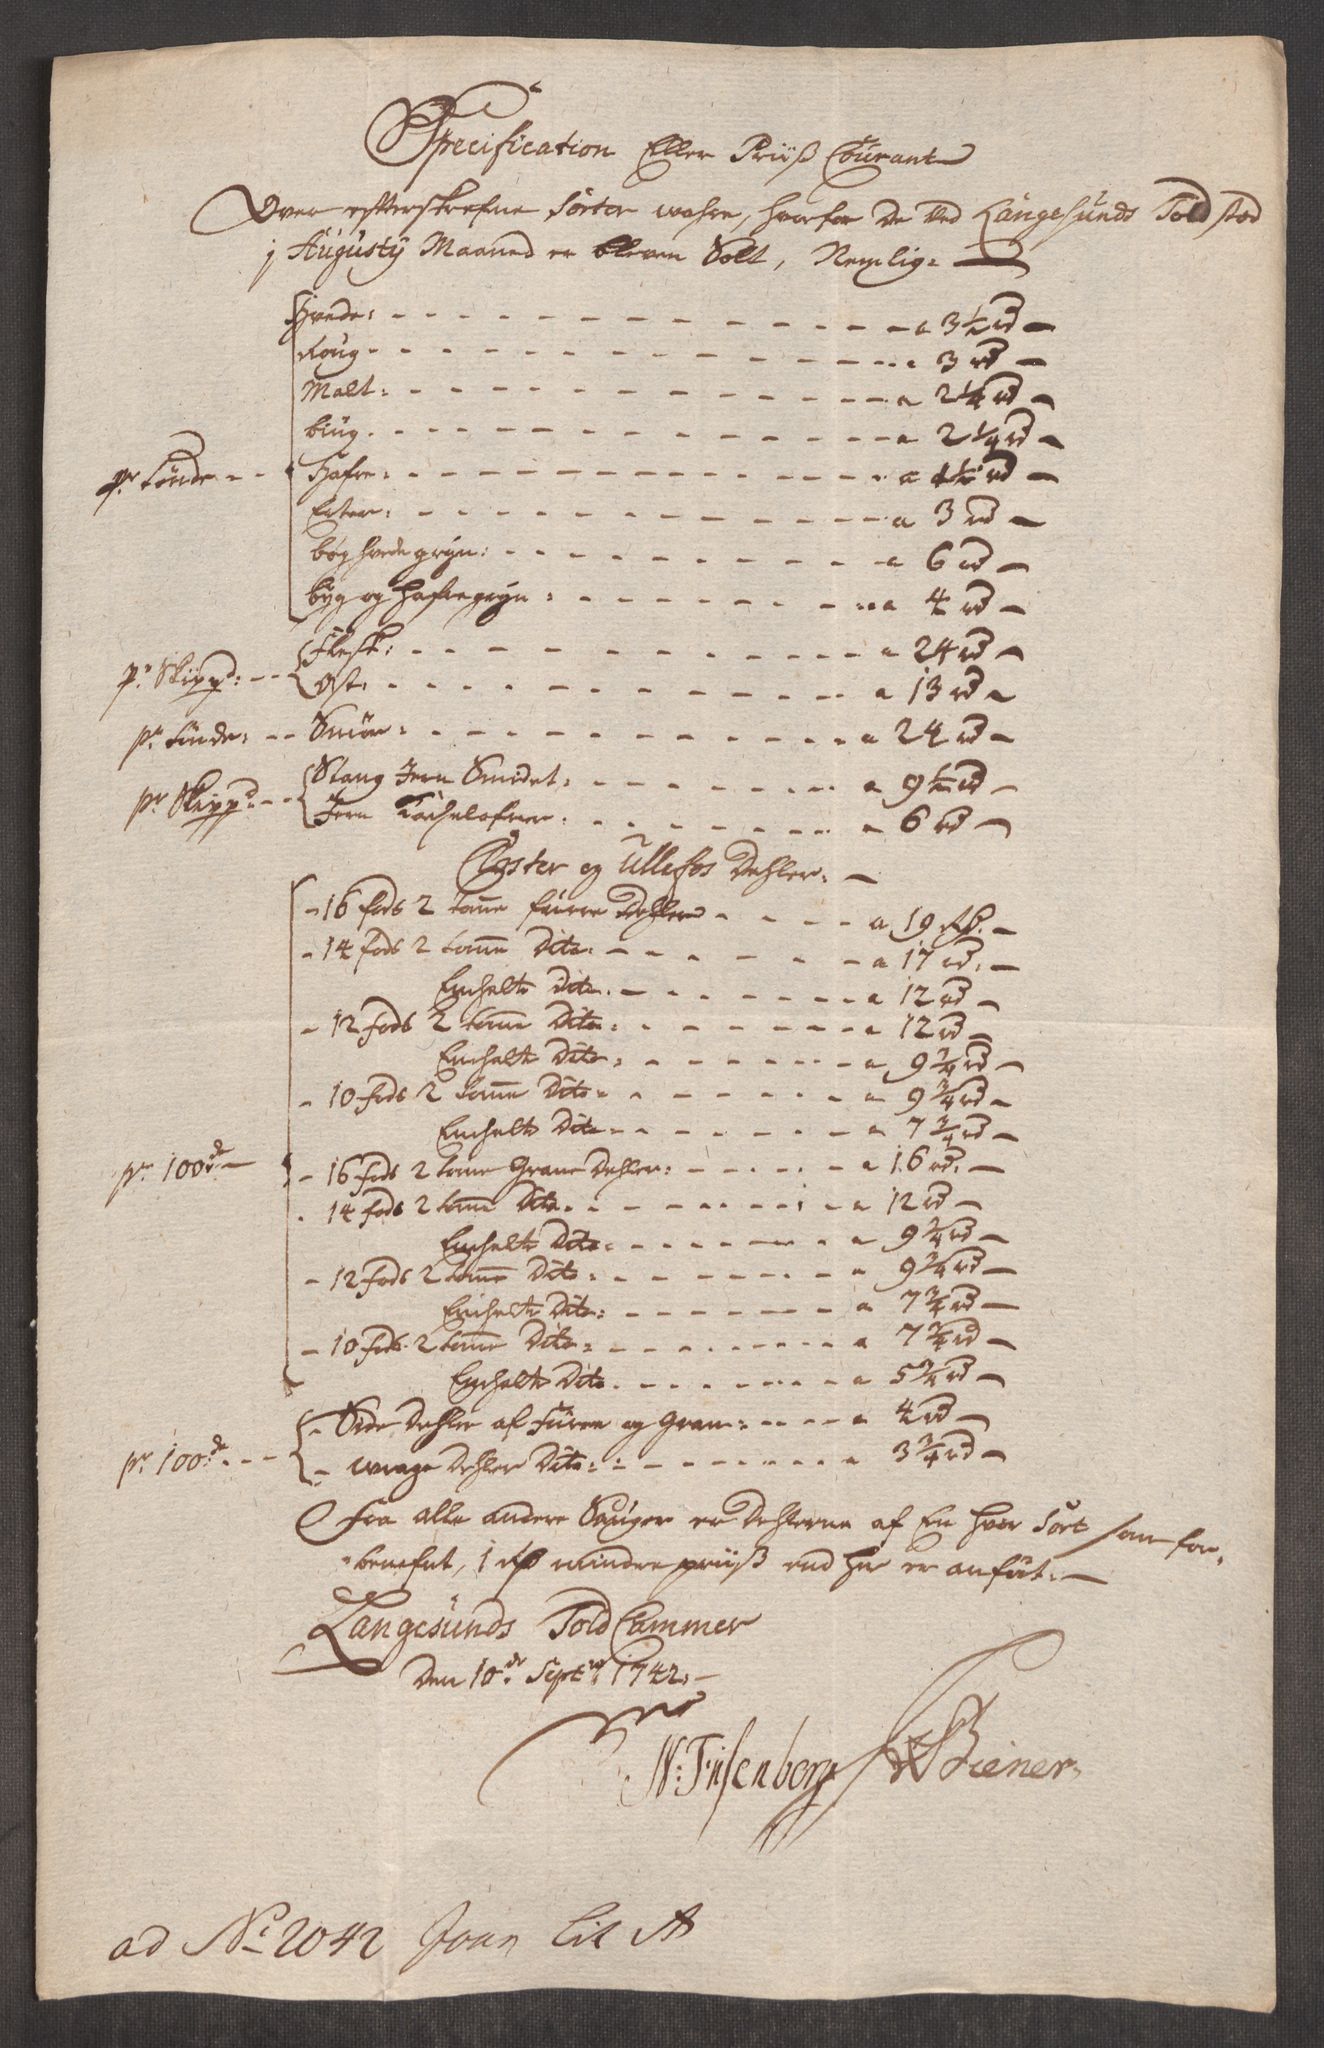 Specification Eller Priiß Courant
Over efterskrefne Sorter wahre, hvorfor de Ved Langesunds Told sted
j Augusty Maaned er bleven Solt, Nemlig:
Hvede: a 3 1/2 rd
Roug a 3 rd
Malt: a 2 1/4 rd
biug a 2 1/4 rd
pr tönde Hafre: a 1 1/2 rd
Erter: a 3 rd
boghvede gryn: a 6 rd
byg og Hafregryn: a 4 rd
pr Skippd: Flesk: a 24 rd
Ost: a 13 rd
pr tönde: Smör: a 24 rd
pr Skippd: Stang Jern Smidet: a 9 1/2 rd
Jern Kachelofner: a 6 rd
Closter og Ullefos Dehler:
16 fods 2 tomme furre Dehler a 19 Rd.
14 fods 2 tomme Dito a 17 rd.
Enchelte Dito a 12 rd
12 fods 2 tomme Dito: a 12 rd
Enchelte Dito: a 9 3/4 rd
10 fods 2 tomme Dito a 9 3/4 rd
Enchelte Dito a 7 3/4 rd
pr 100de 16 fods 2 tomme Grane Dehler: a 16 rd.
14 fods 2 tomme Dito a 12 rd
Enchelte Dito: a 9 3/4 rd
12 fods 2 tomme Dito: a 9 3/4 rd
Enchelte Dito: a 7 3/4 rd
10 fods 2 tomme Dito: a 7 3/4 rd
Enchelte Dito a 5 3/4 rd
pr 100de Side Dehler af Furre og Gran: a 4 rd
wrage Dehler Dito: a 3 3/4 rd
Fra alle andre Sauger er Dehlerne af En hver Sort som for-
benefnt, 1 rd mindre priiß end her er anfört.
Langesunds Told Cammer
den 10de Septbr 1742:
N: Tiisenberg Biener
ad No 2042 Joan Lit A